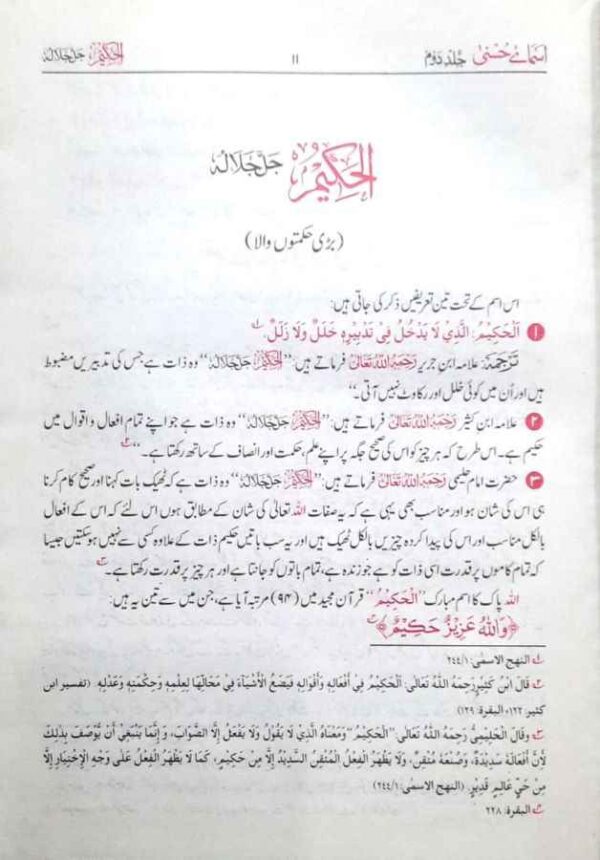 اسمائے حُسنیٰ جلد دوم ۱۱ الحکیم جل جلالہ
الْحَكِيْمُ جَلَّ جَلَالُہٗ
(بڑی حکمتوں والا)
اس اسم کے تحت تین تعریفیں ذکر کی جاتی ہیں:
❶ اَلْحَكِيْمُ: الَّذِيْ لَا يَدْخُلُ فِيْ تَدْبِيْرِهٖ خَلَلٌ وَلَا زَلَلٌ. ؎۱
تَرجَمہ: علامہ ابن جریر رَحِمَهُ اللهُ تَعَالٰی فرماتے ہیں: ”الحکیم جل جلالہ“ وہ ذات ہے جس کی تدبیریں مضبوط
ہیں اور اُن میں کوئی خلل اور رکاوٹ نہیں آتی۔“
❷ علامہ ابن کثیر رَحِمَهُ اللهُ تَعَالٰی فرماتے ہیں: ”الحکیم جل جلالہ“ وہ ذات ہے جو اپنے تمام افعال و اقوال میں
حکیم ہے۔ اس طرح کہ ہر چیز کو اس کی صحیح جگہ پر اپنے علم، حکمت اور انصاف کے ساتھ رکھتا ہے۔“ ؎۲
❸ حضرت امام حلیمی رَحِمَهُ اللهُ تَعَالٰی فرماتے ہیں: ”الحکیم جل جلالہ“ وہ ذات ہے کہ ٹھیک بات کہنا اور صحیح کام کرنا
ہی اس کی شان ہو اور مناسب بھی یہی ہے کہ یہ صفات اللہ تعالیٰ کی شان کے مطابق ہوں اس لئے کہ اس کے افعال
بالکل مناسب اور اس کی پیدا کردہ چیزیں بالکل ٹھیک ہیں اور یہ سب باتیں حکیم ذات کے علاوہ کسی سے نہیں ہو سکتیں جیسا
کہ تمام کاموں پر قدرت اسی ذات کو ہے جو زندہ ہے، تمام باتوں کو جانتا ہے اور ہر چیز پر قدرت رکھتا ہے۔ ؎۳
اللہ پاک کا اسم مبارک ”اَلْحَكِيْمُ“ قرآن مجید میں (۹۴) مرتبہ آیا ہے، جن میں سے تین یہ ہیں:
﴿وَاللهُ عَزِيْزٌ حَكِيْمٌ﴾ ؎۴
؎۱ النهج الاسمٰى: ۲٤٤/۱
؎۲ قَالَ ابْنُ كَثِيْرٍ رَحِمَهُ اللهُ تَعَالٰى: اَلْحَكِيْمُ فِيْ اَفْعَالِهٖ وَاَقْوَالِهٖ فَيَضَعُ الْاَشْيَآءَ فِيْ مَحَالِّهَا لِعِلْمِهٖ وَحِكْمَتِهٖ وَعَدْلِهٖ. (تفسیر ابن
كثير: ۱۲۲، البقرة: ۱۲۹)
؎۳ وَقَالَ الْحَلِيْمِيُّ رَحِمَهُ اللهُ تَعَالٰى: ”اَلْحَكِيْمُ“ وَمَعْنَاهُ الَّذِيْ لَا يَقُوْلُ وَلَا يَفْعَلُ اِلَّا الصَّوَابَ، وَاِنَّمَا يَنْبَغِيْ اَنْ يُّوْصَفَ بِذٰلِكَ
لِاَنَّ اَفْعَالَهٗ سَدِيْدَةٌ، وَصُنْعَهٗ مُتْقَنٌ، وَلَا يَظْهَرُ الْفِعْلُ الْمُتْقَنُ السَّدِيْدُ اِلَّا مِنْ حَكِيْمٍ، كَمَا لَا يَظْهَرُ الْفِعْلُ عَلٰى وَجْهِ الْاِخْتِيَارِ اِلَّا
مِنْ حَيٍّ عَالِمٍ قَدِيْرٍ. (النهج الاسمٰى: ۲٤٤/۱)
؎۴ البقرة: ۲۲۸